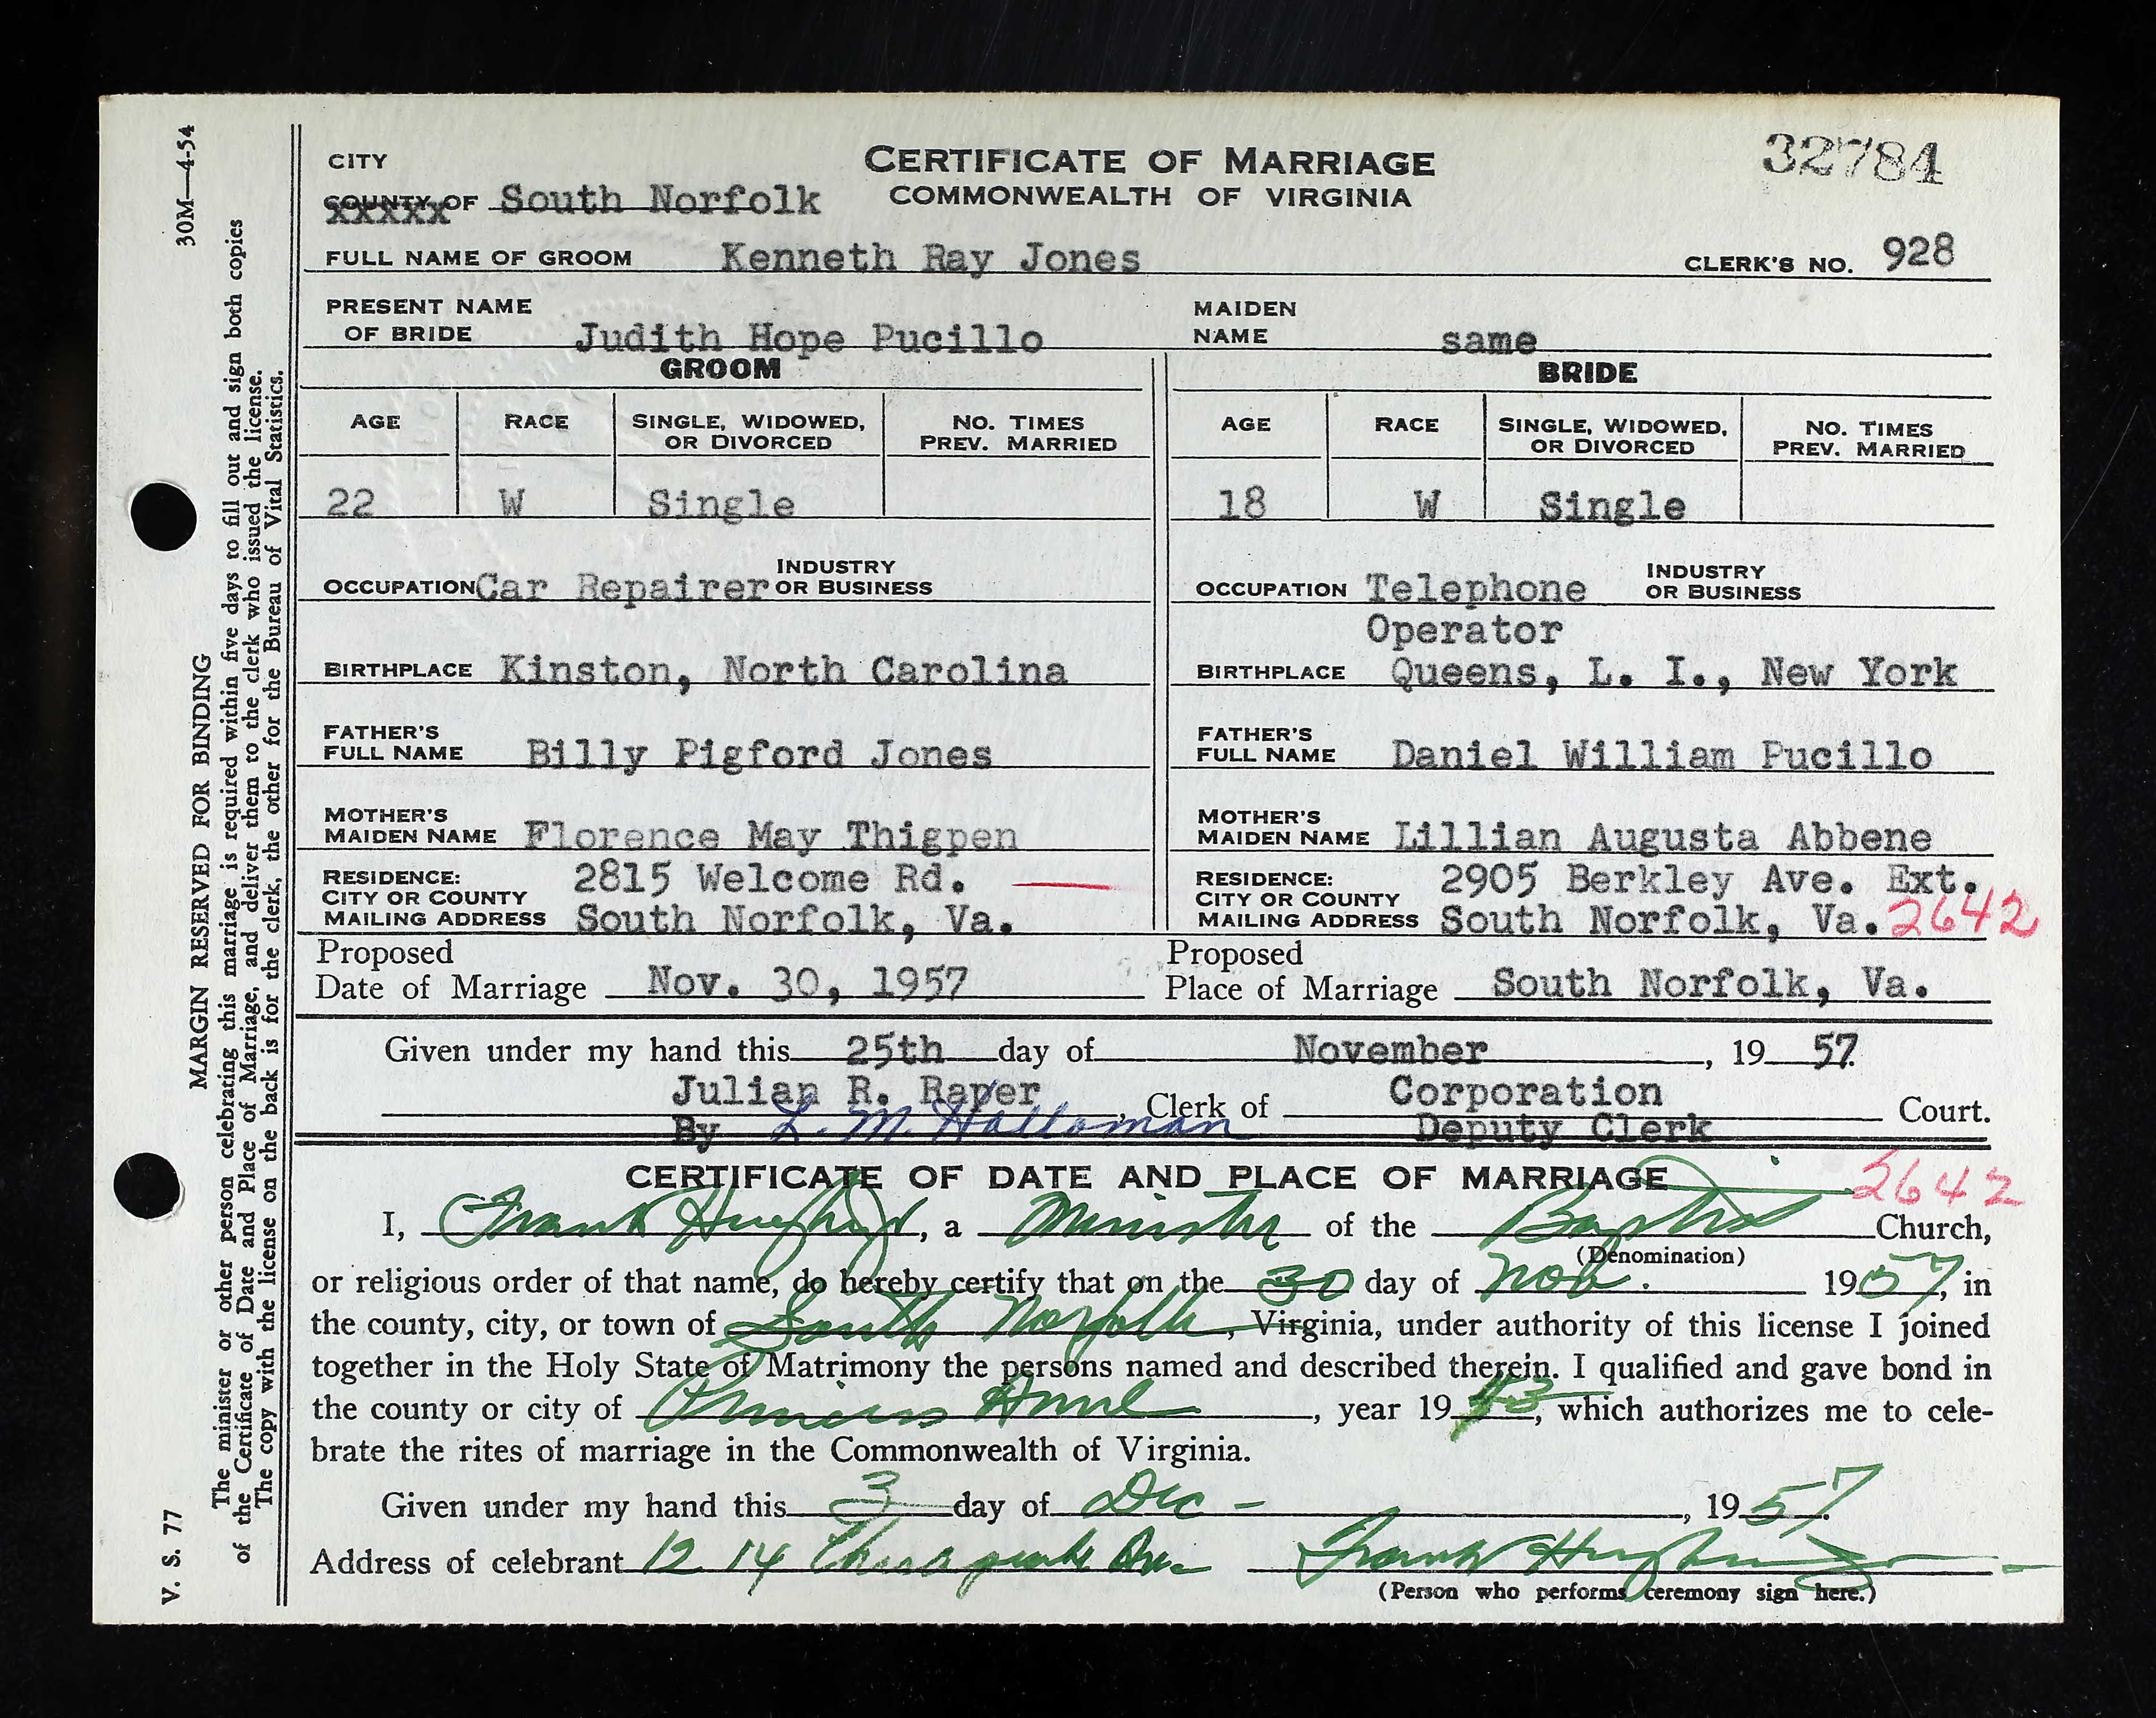 CITY
COUNTY OF South Norfolk
CERTIFICATE OF MARRIAGE
COMMONWEALTH OF VIRGINIA
32784
FULL NAME OF GROOM Kenneth Ray Jones CLERK'S NO. 928
PRESENT NAME OF BRIDE Judith Hope Pucillo MAIDEN NAME same
GROOM BRIDE
AGE RACE SINGLE, WIDOWED, OR DIVORCED NO. TIMES PREV. MARRIED AGE RACE SINGLE, WIDOWED, OR DIVORCED NO. TIMES PREV. MARRIED
22 W Single 18 W Single
OCCUPATION Car Repairer INDUSTRY OR BUSINESS OCCUPATION Telephone Operator INDUSTRY OR BUSINESS
BIRTHPLACE Kinston, North Carolina BIRTHPLACE Queens, L. I., New York
FATHER'S FULL NAME Billy Pigford Jones FATHER'S FULL NAME Daniel William Pucillo
MOTHER'S MAIDEN NAME Florence May Thigpen MOTHER'S MAIDEN NAME Lillian Augusta Abbene
RESIDENCE: CITY OR COUNTY MAILING ADDRESS 2815 Welcome Rd. South Norfolk, Va. RESIDENCE: CITY OR COUNTY MAILING ADDRESS 2905 Berkley Ave. Ext. South Norfolk, Va. 2642
Proposed Date of Marriage Nov. 30, 1957 Proposed Place of Marriage South Norfolk, Va.
Given under my hand this 25th day of November, 1957.
Julian R. Raper, Clerk of Corporation Court.
By L. M. Halloman Deputy Clerk
CERTIFICATE OF DATE AND PLACE OF MARRIAGE 2642
I, Frank Hughes, a Minister of the Baptist Church,
(Denomination)
or religious order of that name, do hereby certify that on the 30 day of Nov. 1957, in
the county, city, or town of South Norfolk, Virginia, under authority of this license I joined
together in the Holy State of Matrimony the persons named and described therein. I qualified and gave bond in
the county or city of Princess Anne, year 19, which authorizes me to cele-
brate the rites of marriage in the Commonwealth of Virginia.
Given under my hand this 3 day of Dec -, 1957.
Address of celebrant 12 14 Chesapeake Ave
(Person who performs ceremony sign here.)
30M—4-54
MARGIN RESERVED FOR BINDING
V. S. 77
The minister or other person celebrating this marriage is required within five days to fill out and sign both copies
of the Certificate of Date and Place of Marriage, and deliver them to the clerk who issued the license.
The copy with the license on the back is for the clerk, the other for the Bureau of Vital Statistics.